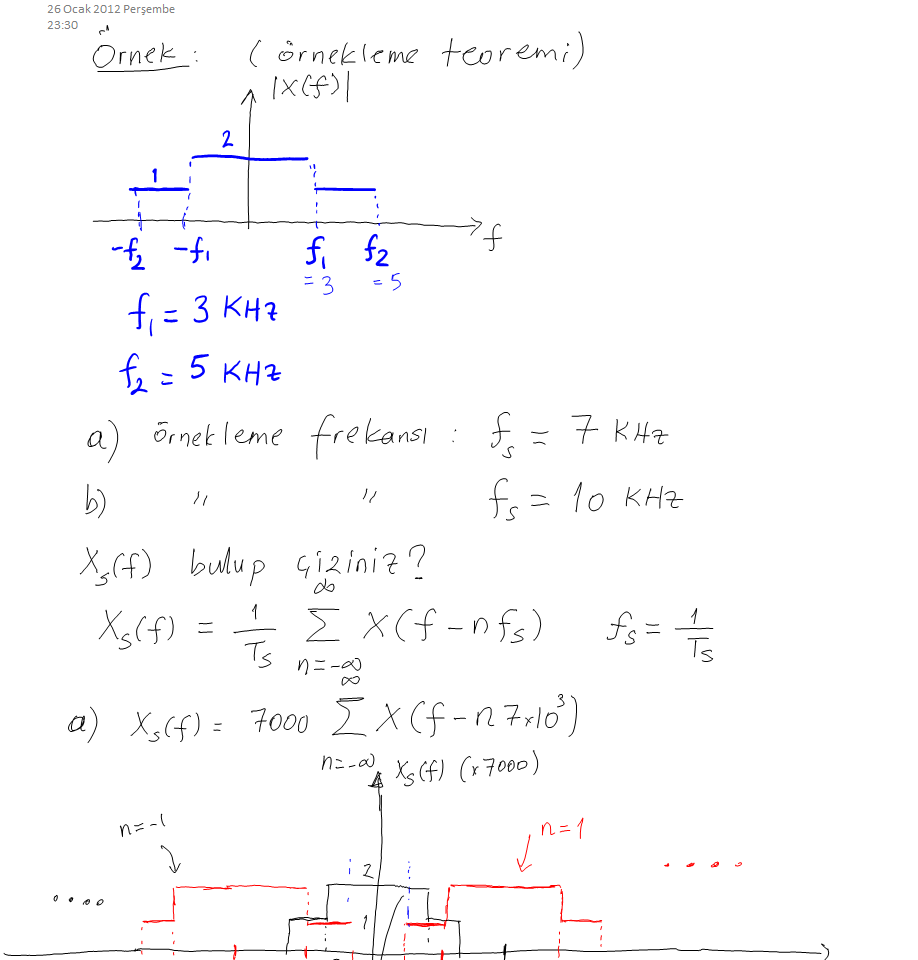 26 Ocak 2012 Perşembe
23:30
Örnek : ( örnekleme teoremi)
|X(f)|
2
1
-f₂ -f₁ f₁ f₂ f
= 3 = 5
f₁ = 3 KHz
f₂ = 5 KHz
a) örnekleme frekansı : fₛ = 7 KHz
b) " " fₛ = 10 KHz
Xₛ(f) bulup çiziniz?
Xₛ(f) = 1/Tₛ ∑_{n=-∞}^{∞} X(f-nfₛ) fₛ = 1/Tₛ
a) Xₛ(f) = 7000 ∑_{n=-∞}^{∞} X(f-n7×10³)
Xₛ(f) (×7000)
n=-1 n=1
2
1